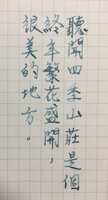 聽聞四季山莊是個
終年繁花盛開，
很美的地方。